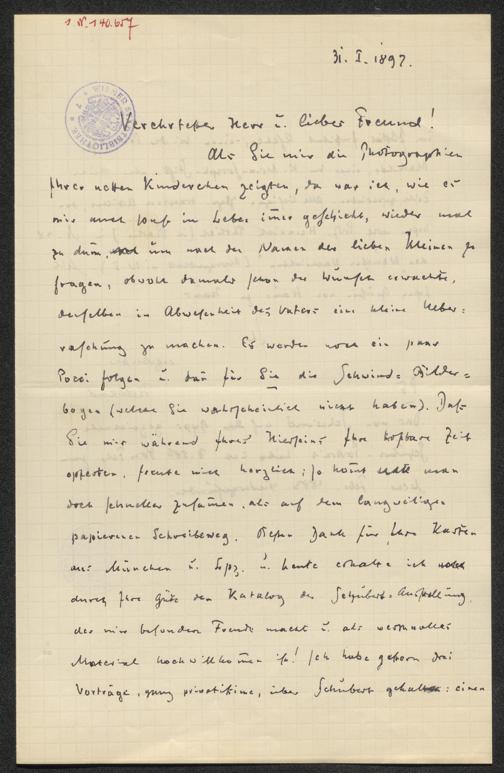 I.N. 140.657
31. I. 1897.
WIENER STADTBIBLIOTHEK
Verehrtester Herr u. lieber Freund!
Als Sie mir die Photographien
Ihrer netten Kinderchen zeigten, da war ich, wie es
mir auch sonst im Leben im̄er geschieht, wieder mal
zu dum̄, um nach den Namen der lieben Kleinen zu
fragen, obwohl damals schon der Wunsch erwachte,
denselben in Abwesenheit des Vaters eine kleine Ueber=
raschung zu machen. Es werden noch ein paar
Pocci folgen u. dan̄ für Sie die Schwind=Bilder=
bogen (welche Sie wahrscheinlich nicht haben). Daß
Sie mir während Ihres Hierseins Ihre kostbare Zeit
opferten, freute mich herzlich; so kom̄t man
doch schneller zusam̄en, als auf dem langweiligen
papierenen Schreibeweg. Besten Dank für Ihre Karten
aus München u. Lpzg. u. heute erhalte ich
durch Ihre Güte den Katalog der Schubert-Ausstellung,
der mir besondere Freude macht u. als werthvolles
Material hochwillkom̄en ist! Ich habe gestern drei
Vorträge, ganz privatissime, über Schubert gehalten: einen